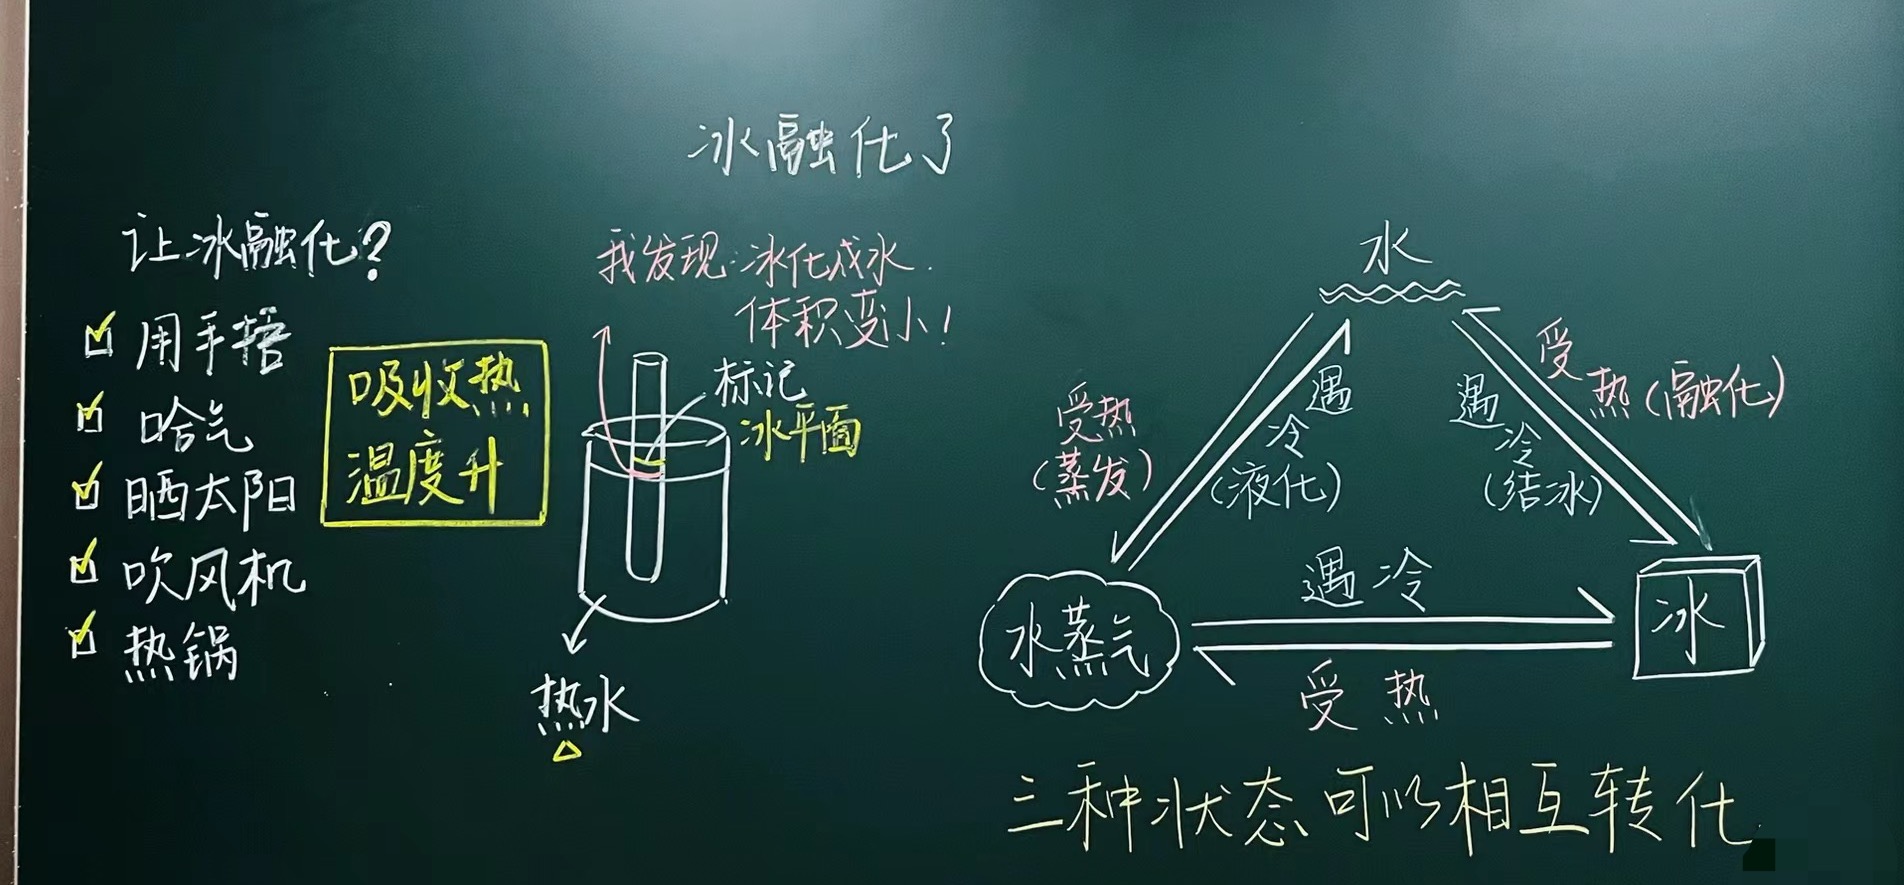 冰融化了
让冰融化?
用手捂
哈气
晒太阳
吹风机
热锅
吸收热
温度升
我发现:冰化成水.
体积变小!
标记
冰平面
热水
水
受热
(蒸发)
遇冷
(液化)
遇冷
(结冰)
受热(融化)
水蒸气
遇冷
受热
冰
三种状态可以相互转化.